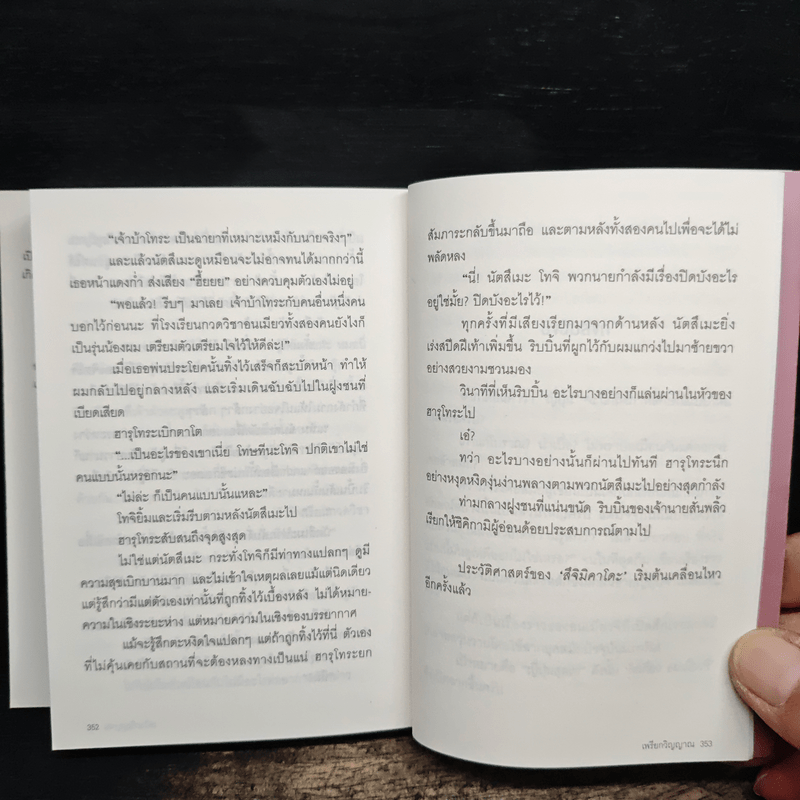 "เจ้าบ้าโทระ เป็นฉายาที่เหมาะเหม็งกับนายจริงๆ"
และแล้วนัตสึเมะดูเหมือนจะไม่อาจทนได้มากกว่านี้
เธอหน้าแดงก่ำ ส่งเสียง "ฮึ้ยยย" อย่างควบคุมตัวเองไม่อยู่
"พอแล้ว! รีบๆ มาเลย เจ้าบ้าโทระกับคนอื่นหนึ่งคน
บอกไว้ก่อนนะ ที่โรงเรียนกวดวิชาอนเมียวทั้งสองคนยังไงก็
เป็นรุ่นน้องผม เตรียมตัวเตรียมใจไว้ให้ดีล่ะ!"
เมื่อเธอพ่นประโยคนั้นทิ้งไว้เสร็จก็สะบัดหน้า ทำให้
ผมกลับไปอยู่กลางหลัง และเริ่มเดินฉับฉับไปในฝูงชนที่
เบียดเสียด
ฮารุโทระเบิกตาโต
"...เป็นอะไรของเขาเนี่ย โทษทีนะโทจิ ปกติเขาไม่ใช่
คนแบบนั้นหรอกนะ"
"ไม่ล่ะ ก็เป็นคนแบบนั้นแหละ"
โทจิยิ้มและเริ่มรีบตามหลังนัตสึเมะไป
ฮารุโทระสับสนถึงจุดสูงสุด
ไม่ใช่แต่นัตสึเมะ กระทั่งโทจิก็มีท่าทางแปลกๆ ดูมี
ความสุขเบิกบานมาก และไม่เข้าใจเหตุผลเลยแม้แต่นิดเดียว
แต่รู้สึกว่ามีแต่ตัวเองเท่านั้นที่ถูกทิ้งไว้เบื้องหลัง ไม่ได้หมาย-
ความในเชิงระยะห่าง แต่หมายความในเชิงของบรรยากาศ
แม้จะรู้สึกตะหงิดใจแปลกๆ แต่ถ้าถูกทิ้งไว้ที่นี่ ตัวเอง
ที่ไม่คุ้นเคยกับสถานที่จะต้องหลงทางเป็นแน่ ฮารุโทระยก
352
สัมภาระกลับขึ้นมาถือ และตามหลังทั้งสองคนไปเพื่อจะได้ไม่
พลัดหลง
"นี่! นัตสึเมะ โทจิ พวกนายกำลังมีเรื่องปิดบังอะไร
อยู่ใช่มั้ย? ปิดบังอะไรไว้!"
ทุกครั้งที่มีเสียงเรียกมาจากด้านหลัง นัตสึเมะยิ่ง
เร่งสปีดฝีเท้าเพิ่มขึ้น ริบบิ้นที่ผูกไว้กับผมแกว่งไปมาซ้ายขวา
อย่างสวยงามชวนมอง
วินาทีที่เห็นริบบิ้น อะไรบางอย่างก็แล่นผ่านในหัวของ
ฮารุโทระไป
เอ๋?
ทว่า อะไรบางอย่างนั้นก็ผ่านไปทันที ฮารุโทระนึก
อย่างหงุดหงิดงุ่นง่านพลางตามพวกนัตสึเมะไปอย่างสุดกำลัง
ท่ามกลางฝูงชนที่แน่นขนัด ริบบิ้นของเจ้านายสั่นพลิ้ว
เรียกให้ชิกิกามิผู้อ่อนด้อยประสบการณ์ตามไป
ประวัติศาสตร์ของ 'สึจิมิคาโดะ' เริ่มต้นเคลื่อนไหว
อีกครั้งแล้ว
เพรียกวิญญาณ 353